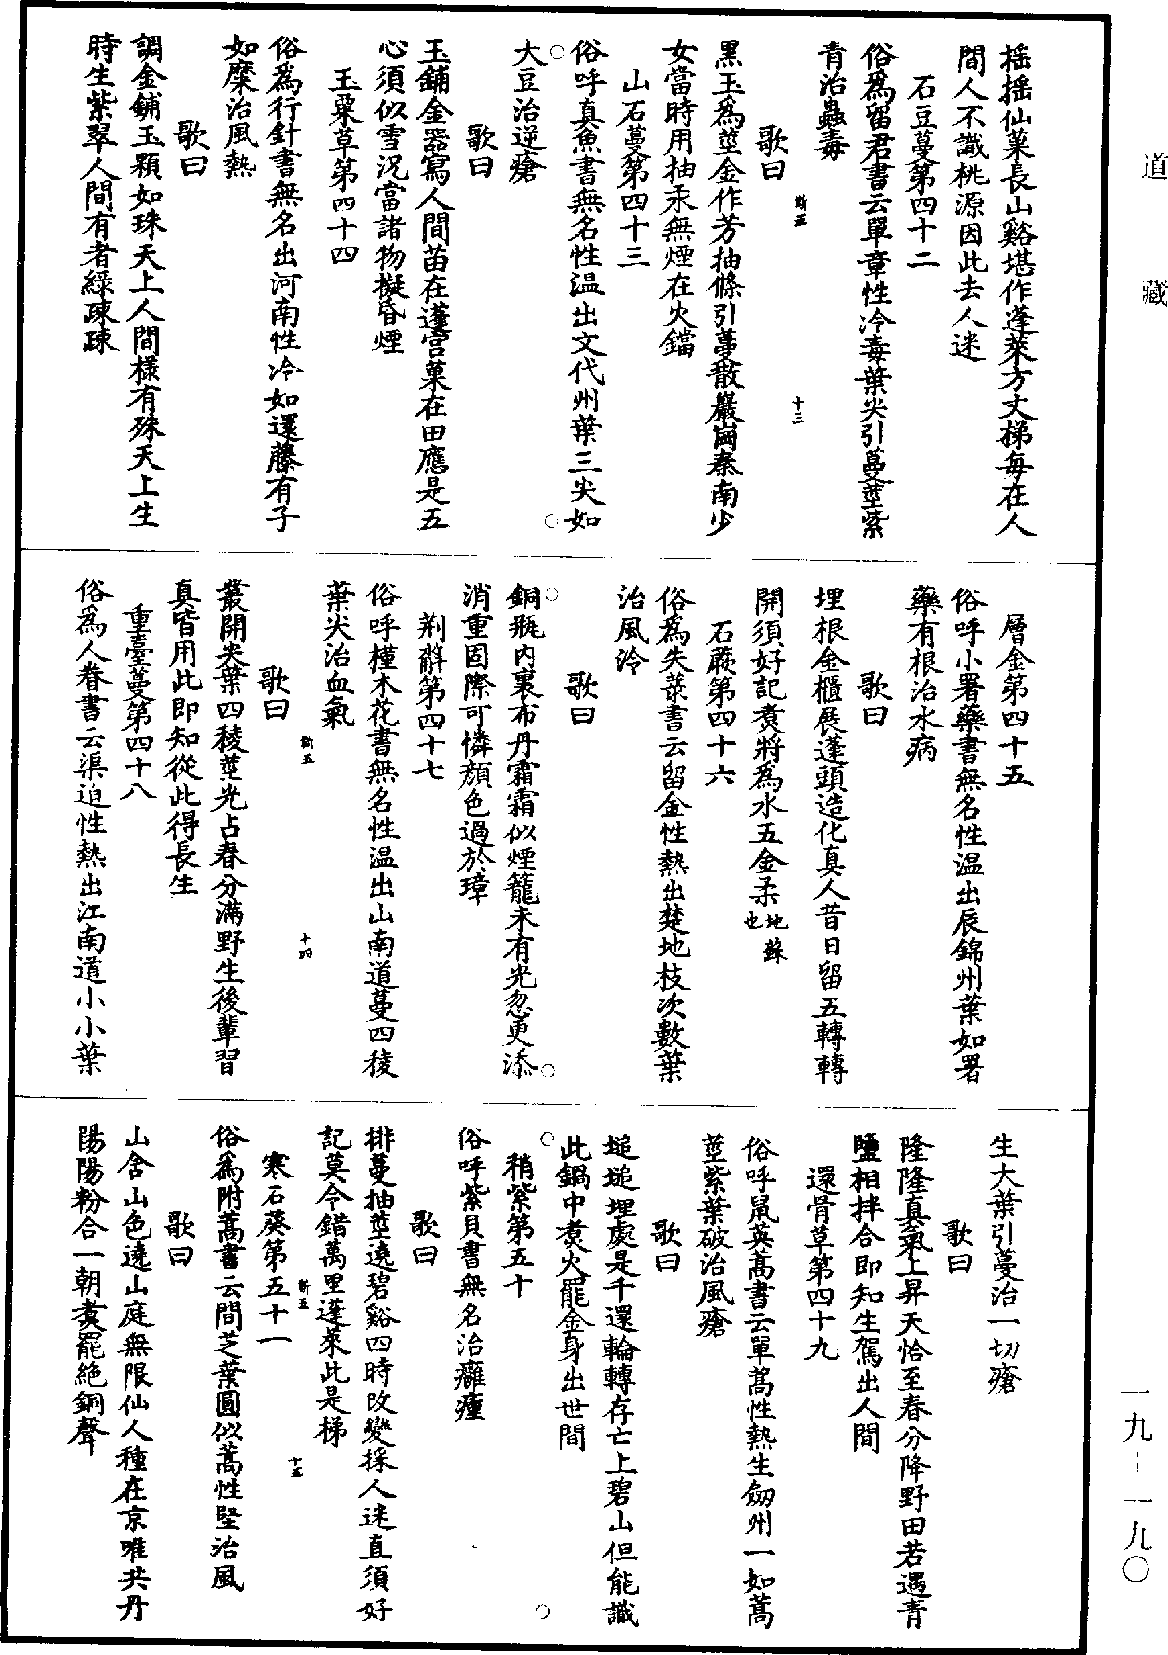 道藏
搖搖仙菓長山谿堪作蓬萊方丈梯每在人
間人不識桃源因此去人迷
石豆蔓第四十二
俗爲留君書云單章性冷毒葉尖引蔓莖紫
青治蟲毒
斯五 十三
歌曰
黑玉爲莖金作芳抽條引蔓散巖崗秦南少
女當時用抽汞無煙在火鐺
山石蔓第四十三
俗呼真魚書無名性溫出文代州葉三尖如
大豆治逆瘡
歌曰
玉鋪金器寫人間苗在蓬宮菓在田應是五
心須似雪況當諸物擬昏煙
玉粟草第四十四
俗爲行針書無名出河南性冷如還藤有子
如糜治風熱
歌曰
調金鋪玉顆如珠天上人間樣有殊天上生
時生紫翠人間有者綠疎疎
層金第四十五
俗呼小署藥書無名性溫出辰錦州葉如署
藥有根治水病
歌曰
埋根金櫃展蓬頭造化真人昔日留五轉轉
開須好記煑將爲水五金柔地蘇也
石蕨第四十六
俗爲失蕤書云留金性熱出楚地枝次數葉
治風冷
歌曰
銅瓶內裏布丹霜霜似煙籠未有光忽更添
消重固際可憐顏色過於璋
荊薢第四十七
俗呼槿木花書無名性溫出山南道蔓四稜
葉尖治血氣
斯五 十四
歌曰
叢開尖葉四稜莖光占春分滿野生後輩習
真皆用此即知從此得長生
重臺蔓第四十八
俗爲人眷書云渠迫性熱出江南道小小葉
生大葉引蔓治一切瘡
歌曰
隆隆真氣上昇天恰至春分降野田若遇青
鹽相拌合即知生駕出人間
還骨草第四十九
俗呼鼠英蒿書云單蒿性熱生劒州一如蒿
莖紫葉破治風瘡
歌曰
搥搥埋處是千還輪轉存亡上碧山但能識
此鍋中煑火罷金身出世間
稍紫第五十
俗呼紫貝書無名治癰瘇
歌曰
排蔓抽莖遶碧谿四時改變採人迷直須好
記莫令錯萬里蓬萊此是梯
寒石葵第五十一
斯五 十五
俗爲附蒿書云間芝葉圓似蒿性堅治風
歌曰
山含山色遶山庭無限仙人種在京唯共丹
陽陽粉合一朝煑罷絕銅聲
一九-一九〇